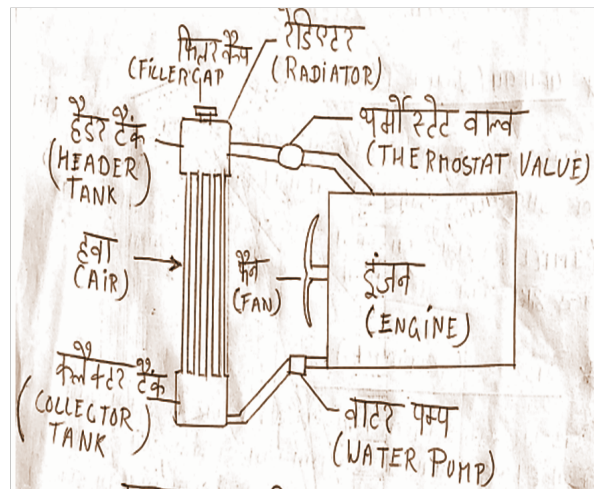 फिलर कैप
(FILLERCAP
रेडिएटर
(RADIATOR)
हैडर टैंक
(HEADER
TANK)
थर्मोस्टेट वाल्व
(THERMOSTAT VALUE)
हवा
(AIR)
फैन
(FAN)
इंजन
(ENGINE)
क्लैक्टर टैंक
(COLLECTOR
TANK)
वाटर पम्प
(WATER PUMP)